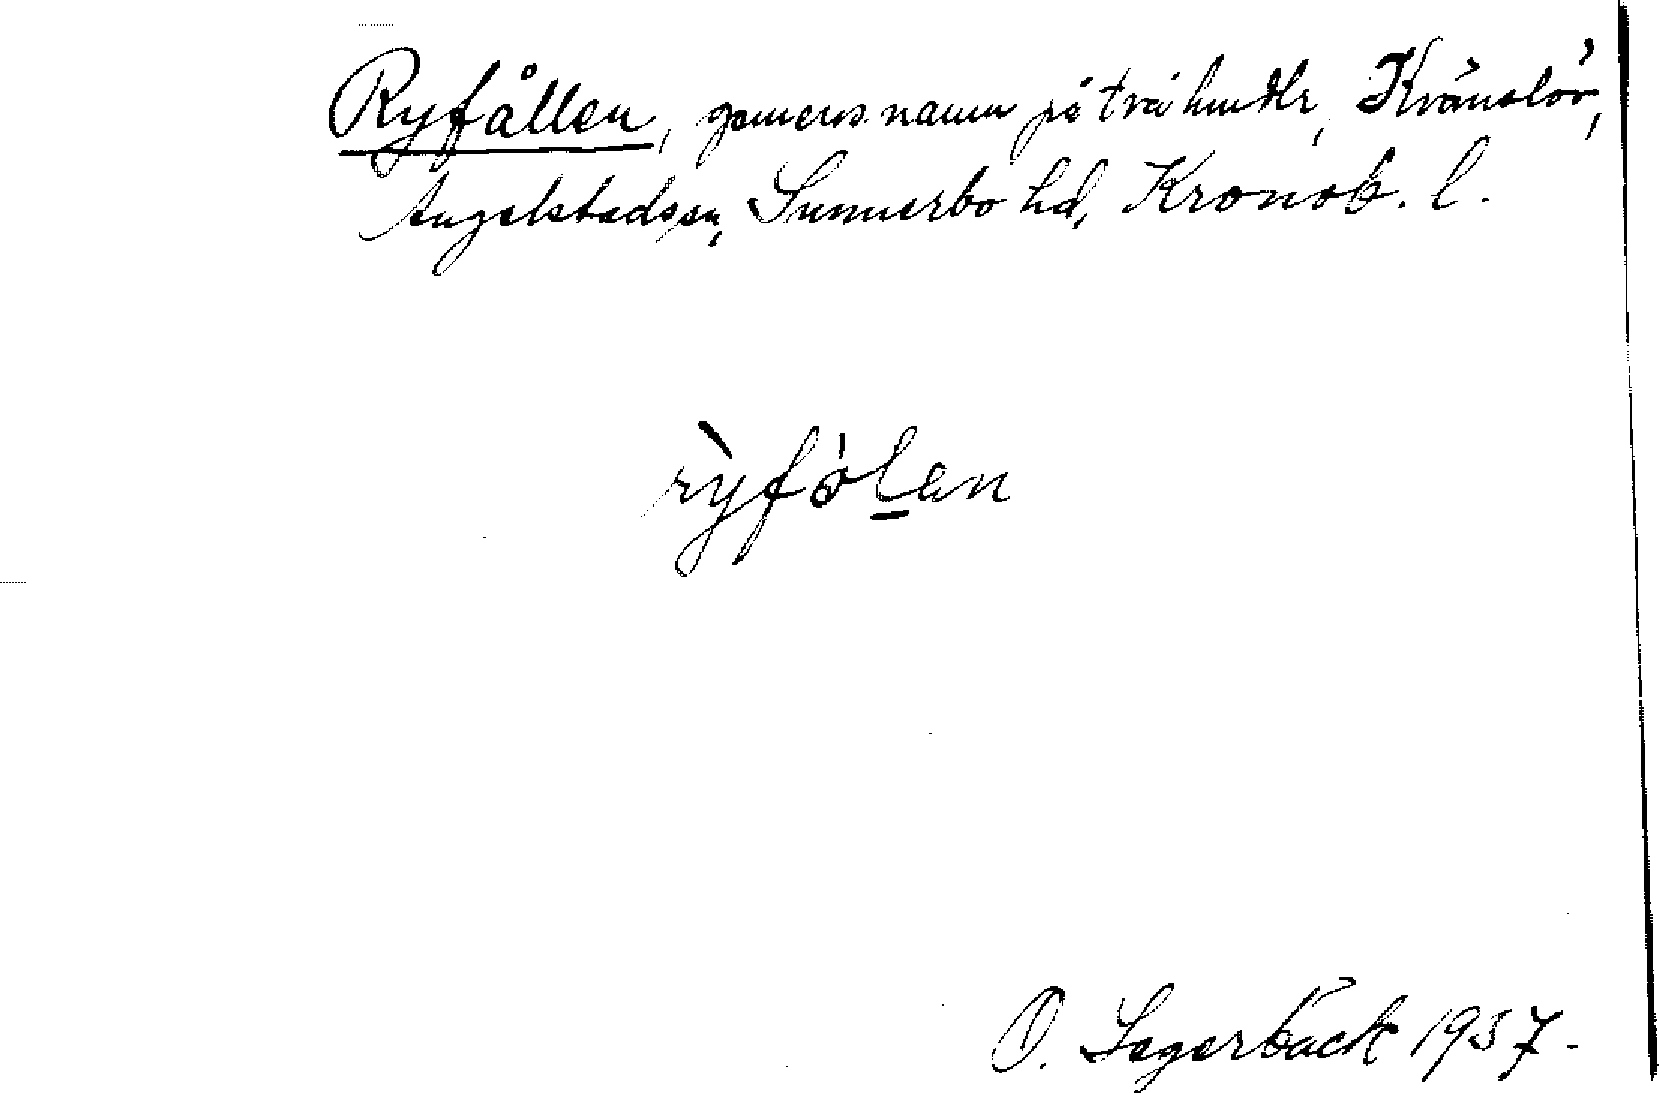 Ryfållen, gemens. namn på två hmdtr, Kvänslöv,
Angelstads sn, Sunnerbo hd, Kronob. l.
ryfolen
O. Lagerbäck 1937.